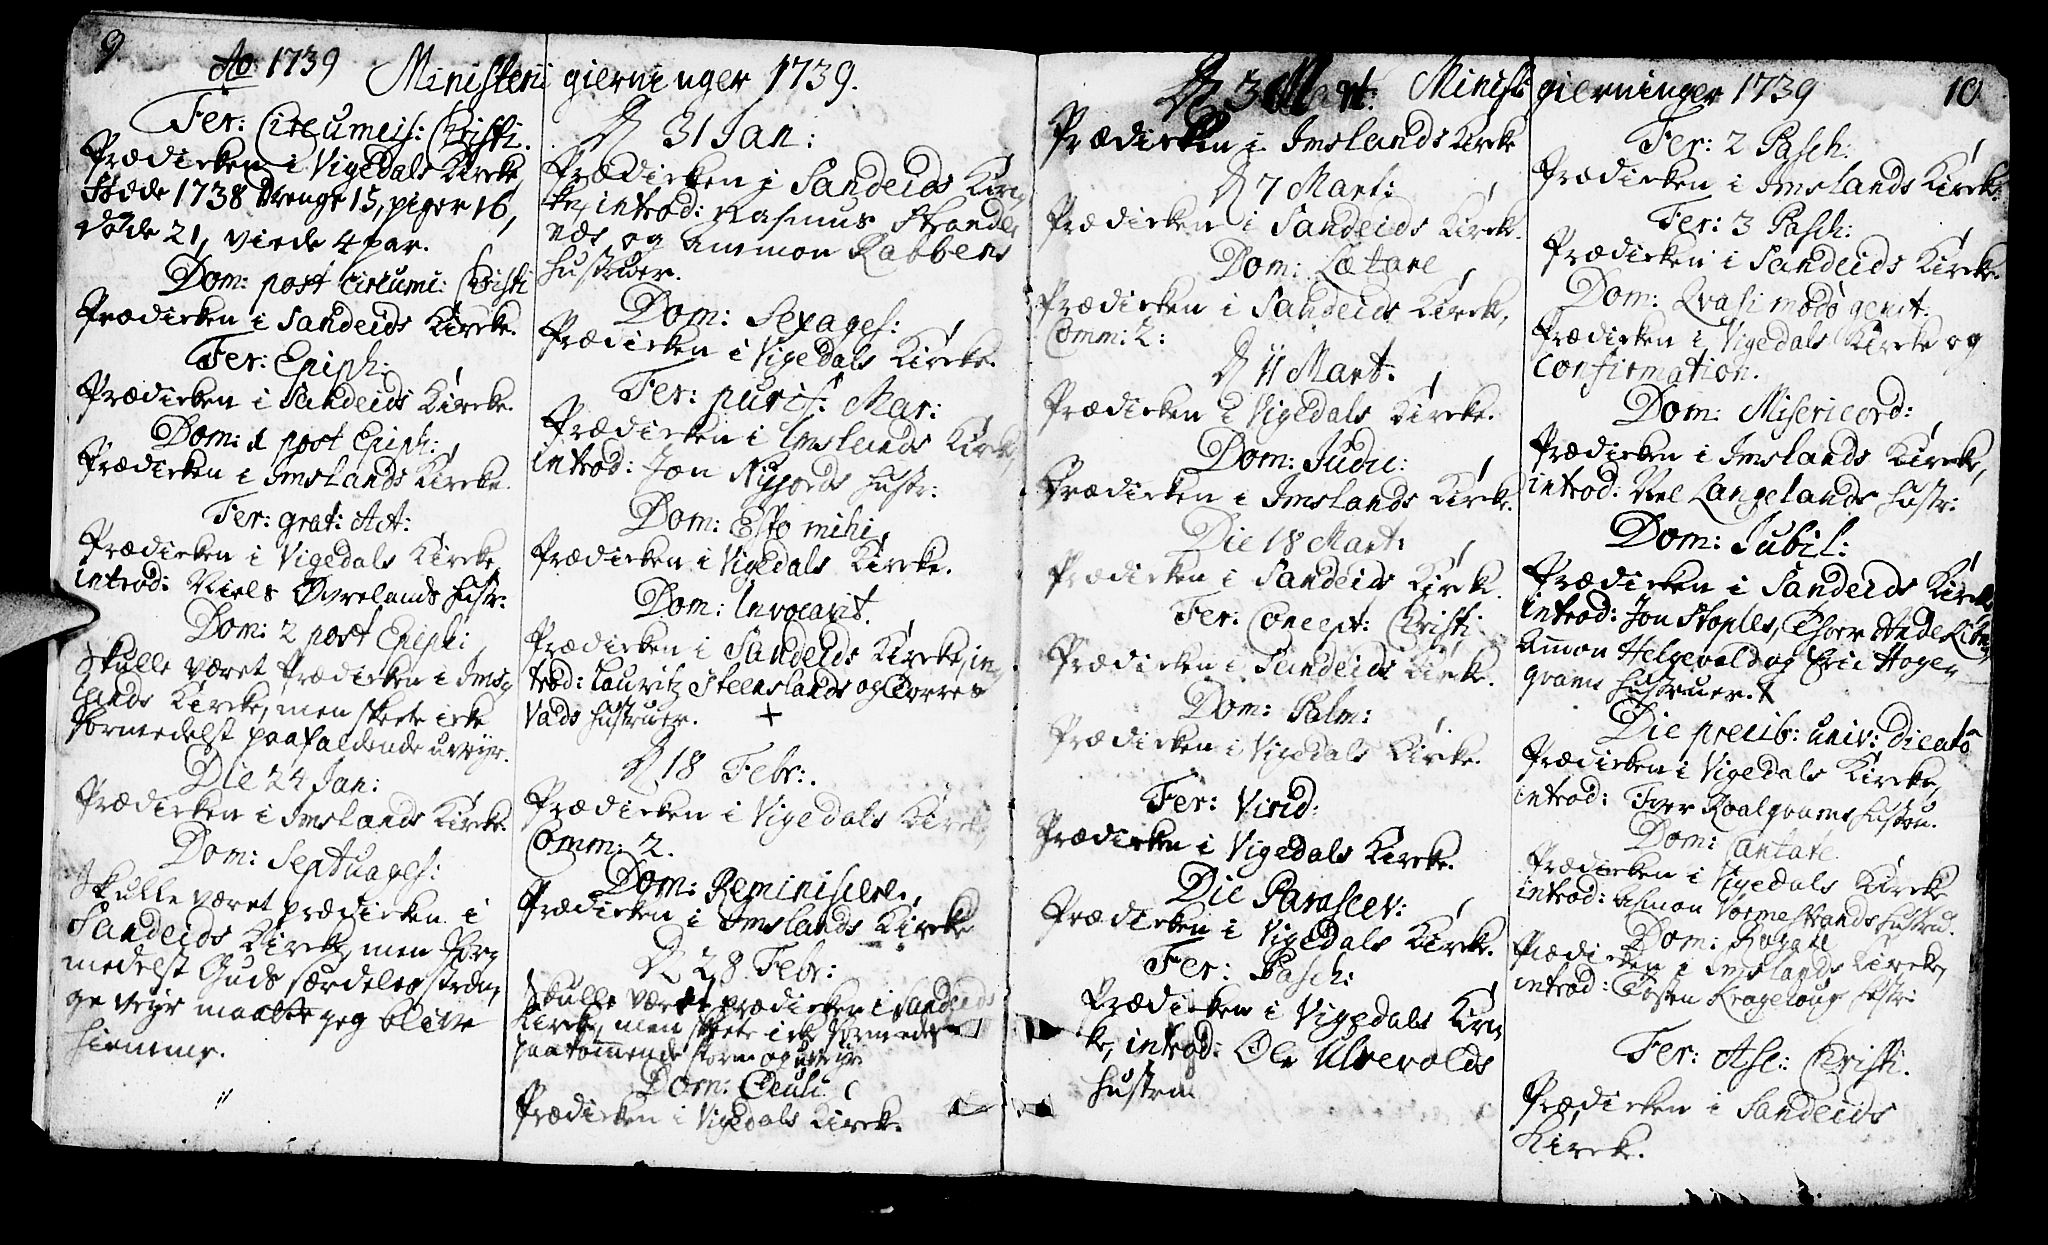 9
Ao 1739 Ministerii gierninger 1739.
Fer: Circumcis: Christi.
Prædicken i Vigedals Kircke,
fødde 1738 Drenge 15, piger 16,
døde 21, viede 4 par.
Dom: post circumc: Christi
Prædicken i Sandeids Kircke.
Fer: Epiph:
Prædicken i Sandeids Kircke.
Dom: 1 post Epiph:
Prædicken i Imslands Kircke.
Fer: grat: Act:
Prædicken i Vigedals Kircke
introd: Niels Øvrelands hustr:
Dom: 2 post Epiph:
Skulle været Prædicken i Ims-
lands Kircke, men skeete icke
formedelst paafaldende uveyr.
Die 24 Jan:
Prædicken i Imslands Kircke.
Dom: Septuages:
Skulle været prædicken i
Sandeids Kircke, men for-
medelst Guds særdeles stren-
ge veyr maatte jeg blive
hiemme.
D 31 Jan:
Prædicken i Sandeids Kirc-
ke, introd: Rasmus Strande-
næs og Ammon Rabbens
hustruer.
Dom: Sexages:
Prædicken i Vigedals Kircke.
Fer: purif: Mar:
Prædicken i Imslands Kircke
introd: Jon hustr:
Dom: Esto mihi,
Prædicken i Vigedals Kircke.
Dom: Invocavit.
Prædicken i Sandeids Kircke, in-
trod: Lauritz Steenslands og
Vads hustruer. +
D 18 Febr:
Prædicken i Vigedals Kircke,
Comm: 2.
Dom: Reminiscere,
Prædicken i Imslands Kircke
D 28 Febr:
Skulle været prædicken i Sandeids
Kircke, men skeete icke formedelst
paakommende storm og uveyr
Dom: Oculi
Prædicken i Vigedals Kircke.
D 3 Mart: Minist: gierninger 1739 10
Prædicken i Imslands Kircke
D 7 Mart:
Prædicken i Sandeids Kircke.
Dom: Lætare
Prædicken i Sandeids Kircke,
Comm: 2:
D 11 Mart:
Prædicken i Vigedals Kircke.
Dom: Judic:
Prædicken i Imslands Kircke.
Die 18 Mart:
Prædicken i Sandeids Kircke.
Fer: Concept: Christi
Prædicken i Sandeids Kircke.
Dom: Palm:
Prædicken i Vigedals Kircke.
Fer: Virid:
Prædicken i Vigedals Kircke.
Die Parascev:
Prædicken i Vigedals Kircke.
Fer: Pasch:
Prædicken i Vigedals Kirc-
ke, introd: Ole Ulvevolds
hustrue
Fer: 2 Pasch:
Prædicken i Imslands Kircke.
Fer: 3 Pasch:
Prædicken i Sandeids Kircke.
Dom: Qvasimodogenit.
Prædicken i Vigedals Kircke og
confirmation.
Dom: Misericord:
Prædicken i Imslands Kircke,
introd: Langelands hustr:
Dom: Jubil:
Prædicken i Sandeids Kircke
introd: Jon Stoples,
Ammon Helgevold og Eric Hogen
qvams hustruer. +
Die precib: univ: dicato
Prædicken i Vigedals Kircke,
introd: Roalqvams hustru.
Dom: Cantate
Prædicken i Vigedals Kircke
introd: Vormestrands hustru.
Dom: Rogate
Prædicken i Imslands Kircke,
introd: Tosten hustr:
Fer: Asc: Christi.
Prædicken i Sandeids
Kircke.